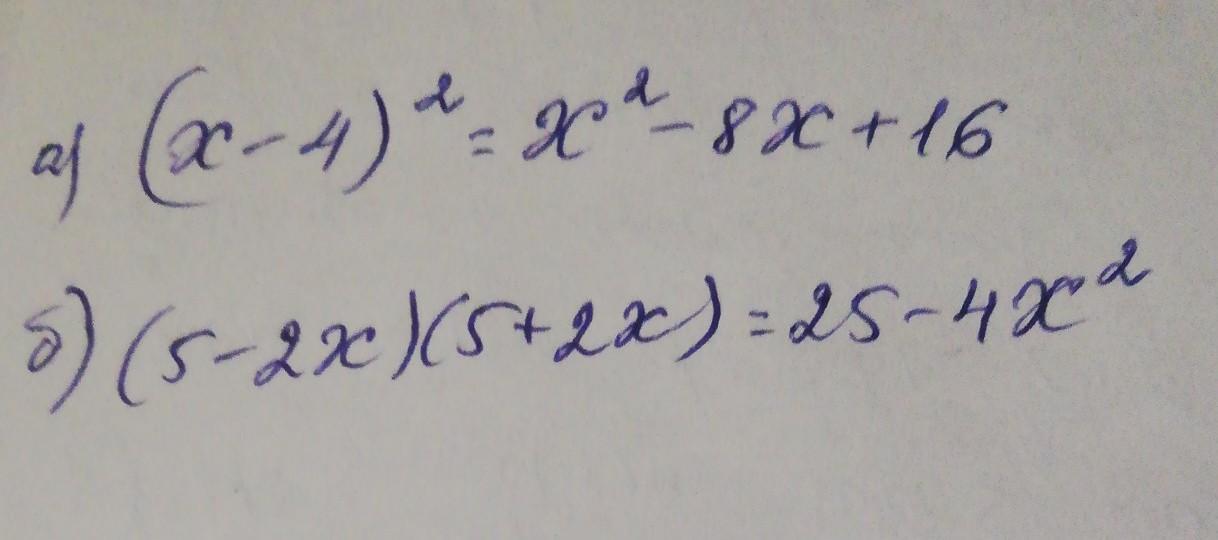 а) (x-4)² = x² - 8x + 16
б) (5-2x)(5+2x) = 25-4x²